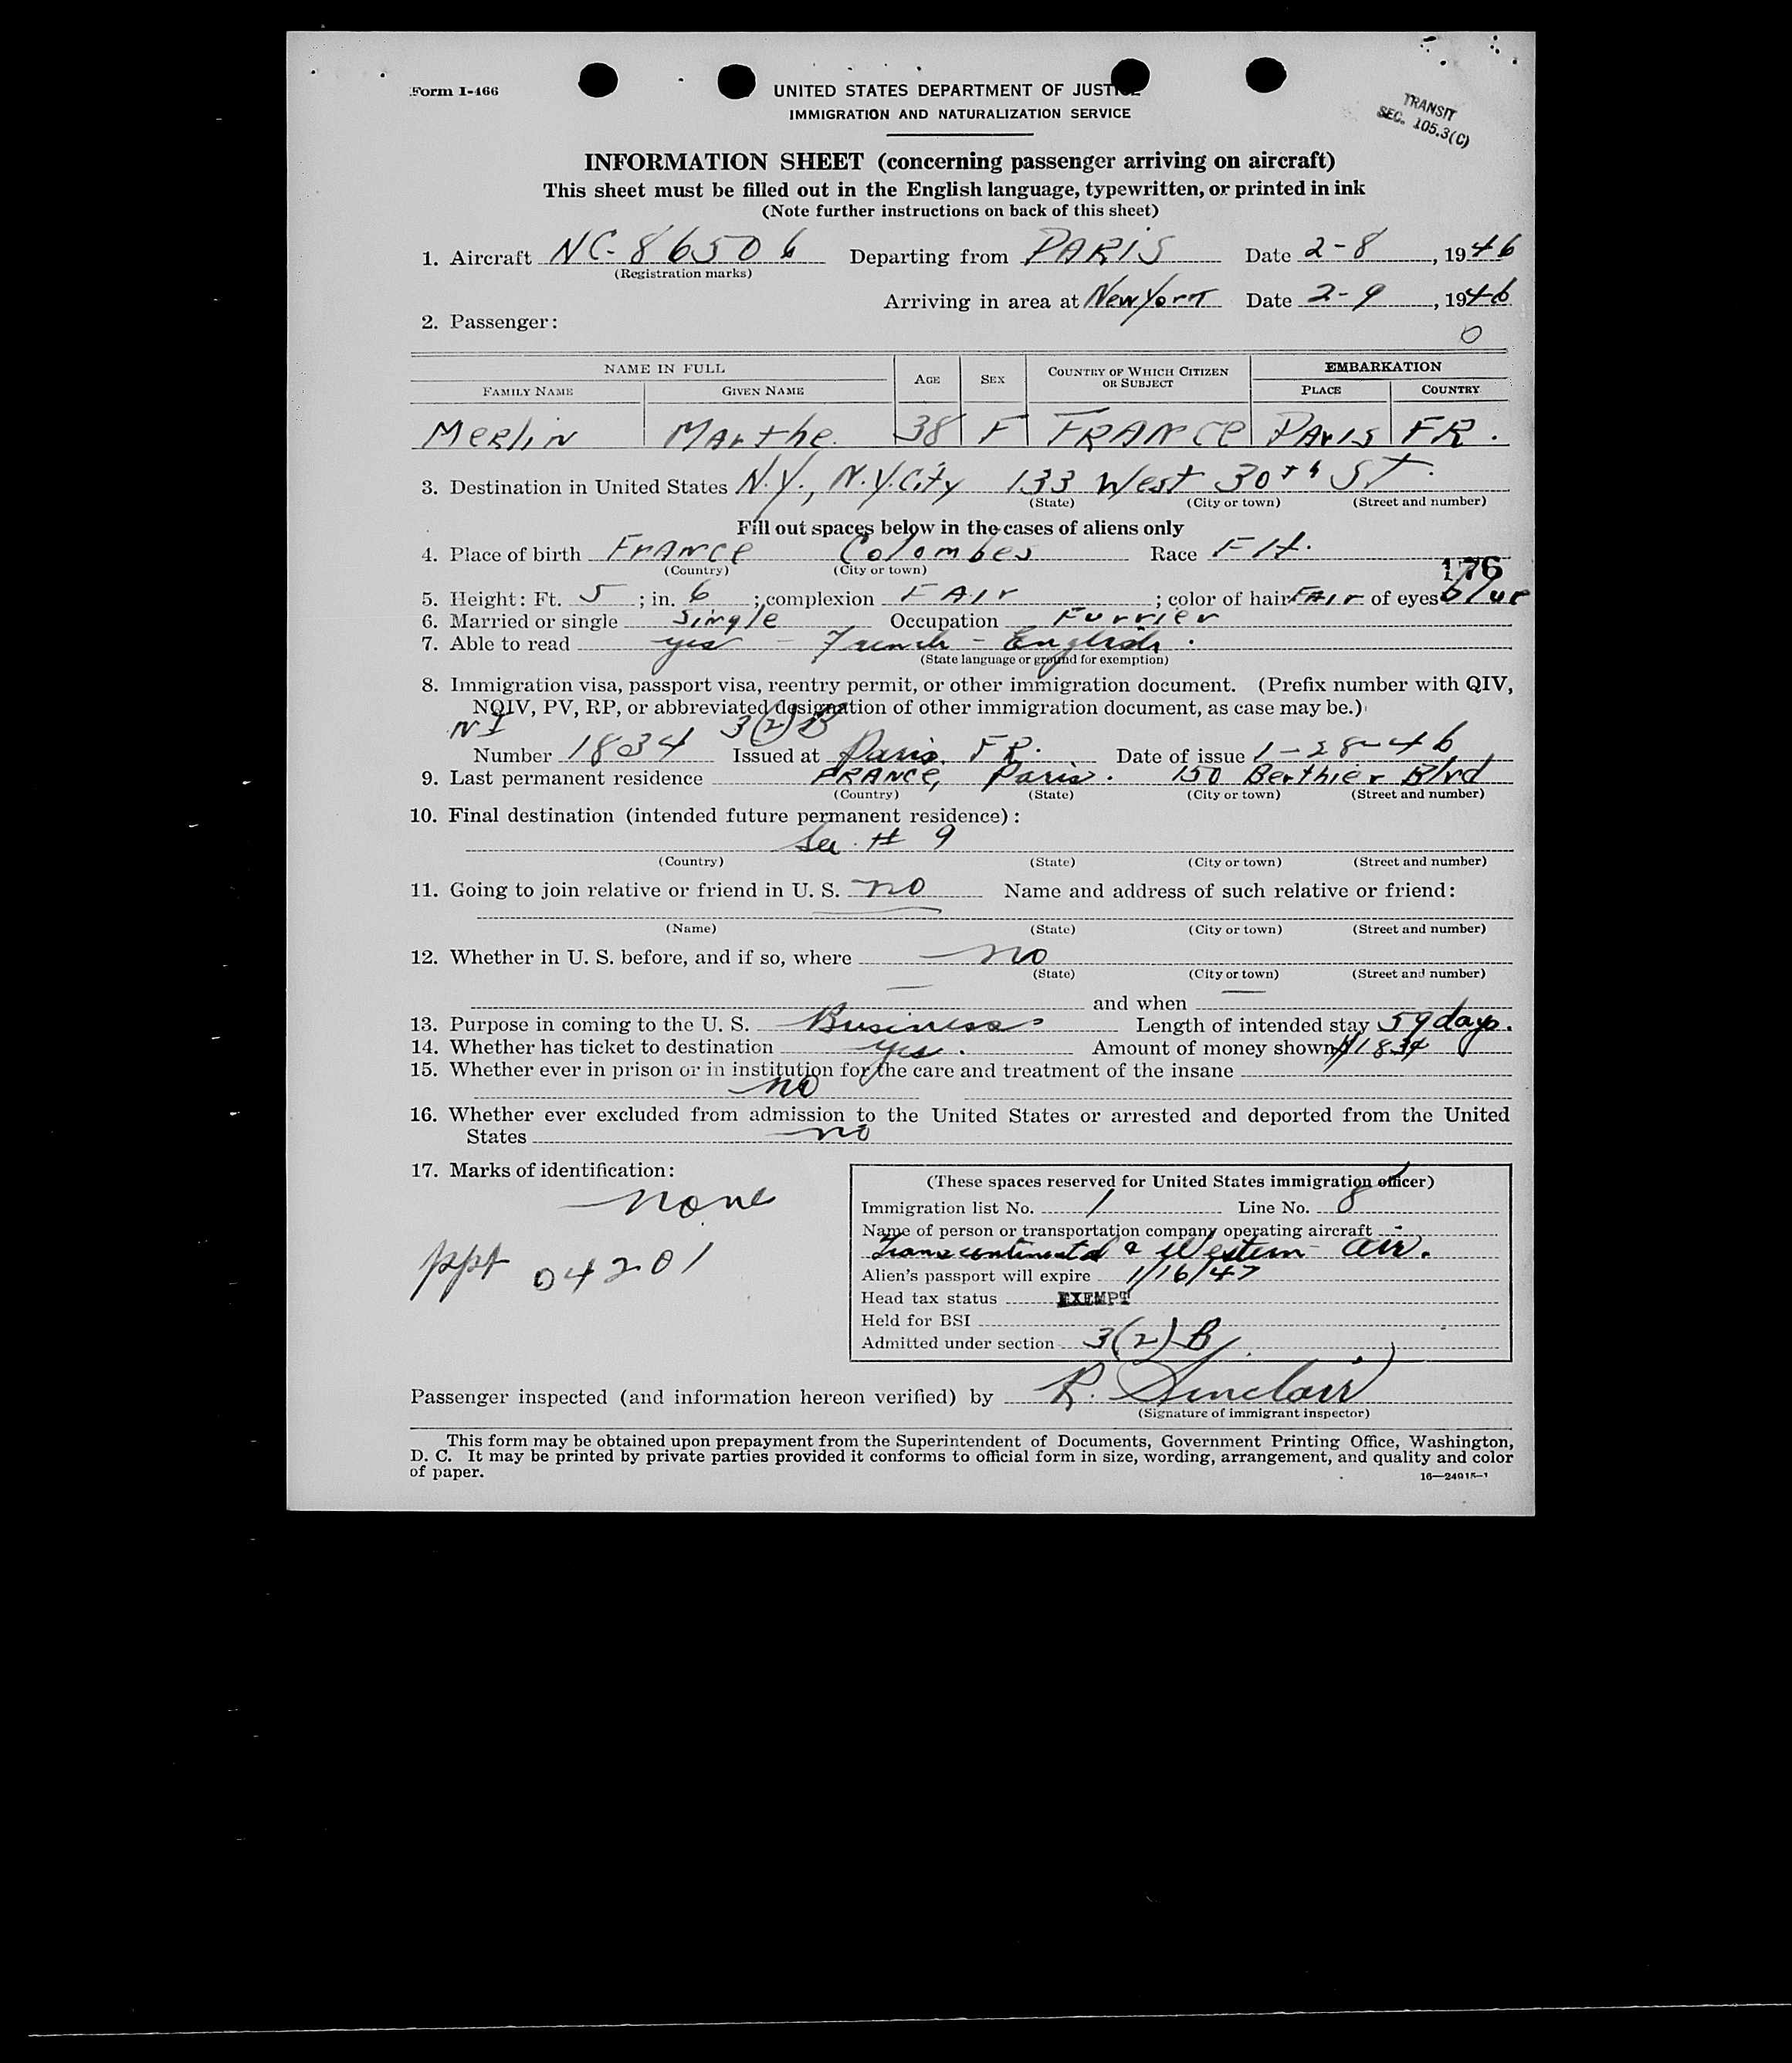 Form I-466
UNITED STATES DEPARTMENT OF JUSTICE
IMMIGRATION AND NATURALIZATION SERVICE
TRANSIT
SEC. 105.3(C)
INFORMATION SHEET (concerning passenger arriving on aircraft)
This sheet must be filled out in the English language, typewritten, or printed in ink
(Note further instructions on back of this sheet)
1. Aircraft NC-86506 Departing from PARIS Date 2-8, 1946
(Registration marks)
Arriving in area at New York Date 2-9, 1946
2. Passenger:
0
NAME IN FULL AGE SEX COUNTRY OF WHICH CITIZEN OR SUBJECT EMBARKATION
FAMILY NAME GIVEN NAME PLACE COUNTRY
Merlin Marthe 38 F FRANCE PARIS FR.
3. Destination in United States N.Y., N.Y. City 133 West 30th ST.
(State) (City or town) (Street and number)
Fill out spaces below in the cases of aliens only
4. Place of birth France Colombes Race FH.
(Country) (City or town)
176
5. Height: Ft. 5; in. 6; complexion FAIr; color of hair FAIr of eyes blue
6. Married or single Single Occupation Furrier
7. Able to read yes - French - English.
(State language or ground for exemption)
8. Immigration visa, passport visa, reentry permit, or other immigration document. (Prefix number with QIV,
NQIV, PV, RP, or abbreviated designation of other immigration document, as case may be.)
NI 3(2)B
Number 1834 Issued at Paris. FR. Date of issue 1-28-46
9. Last permanent residence FRANCE, Paris. 150 Berthier Blvd
(Country) (State) (City or town) (Street and number)
10. Final destination (intended future permanent residence):
See # 9
(Country) (State) (City or town) (Street and number)
11. Going to join relative or friend in U. S. no Name and address of such relative or friend:
(Name) (State) (City or town) (Street and number)
12. Whether in U. S. before, and if so, where no
(State) (City or town) (Street and number)
and when
13. Purpose in coming to the U. S. Business Length of intended stay 59 days.
14. Whether has ticket to destination yes. Amount of money shown $1834
15. Whether ever in prison or in institution for the care and treatment of the insane
no
16. Whether ever excluded from admission to the United States or arrested and deported from the United
States no
17. Marks of identification:
none
ppt 04201
(These spaces reserved for United States immigration officer)
Immigration list No. 1 Line No. 8
Name of person or transportation company operating aircraft
Transcontinental & Western Air.
Alien's passport will expire 1/16/47
Head tax status EXEMPT
Held for BSI
Admitted under section 3(2)B
Passenger inspected (and information hereon verified) by R. Sinclair
(Signature of immigrant inspector)
This form may be obtained upon prepayment from the Superintendent of Documents, Government Printing Office, Washington,
D. C. It may be printed by private parties provided it conforms to official form in size, wording, arrangement, and quality and color
of paper.
16—24915-1